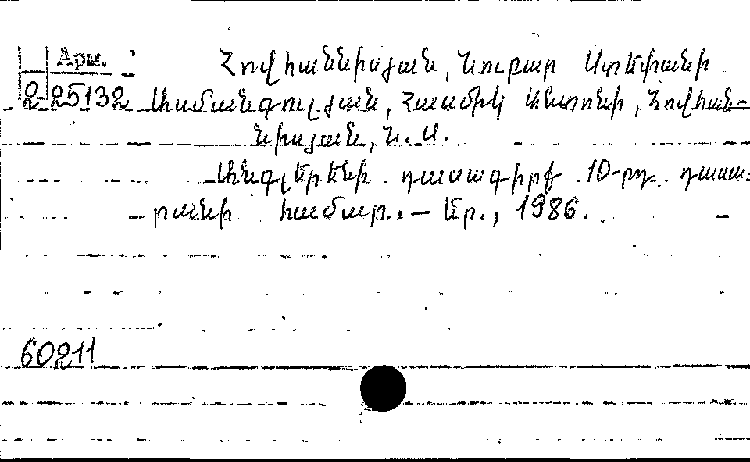 Арм.
2 25132
Հովհաննիսյան, Նուբար Ստեփանի
Ասմանգուլյան, Հասմիկ Անտոնի, Հովհան-
նիսյան, Ն. Ս.
Անգլերենի դասագիրք 10-րդ դասա-
րանի համար. – Եր., 1986.
60211